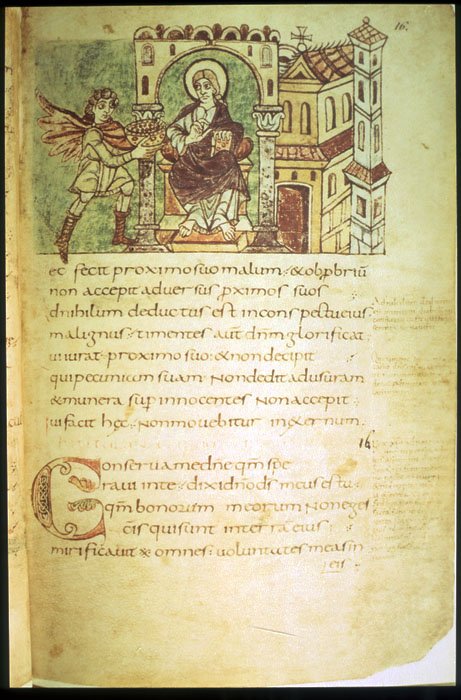 16.
et fecit proximo suo malum · & obp̄briū
non accepit adversus p̄ximos suos
Ad nihilum deductus est in conspectu eius
malignus · timentes aūt dn̄m glorificat ·
Qui iurat · proximo suo · & non decipit
qui pecuniam suam · Non dedit ad usuram
& munera sup̄ innocentes Non accepit ·
Qui facit hęc · Non movebitur in &ernum ·
16
Conserva me dn̄e qm̄ spe
ravi in te · dixi dn̄o ds̄ meus es tu
qm̄ bonorum meorum Non eges
S̄cīs qui sunt in terra eius ·
mirificavit omnes voluntates meas in
eis ·